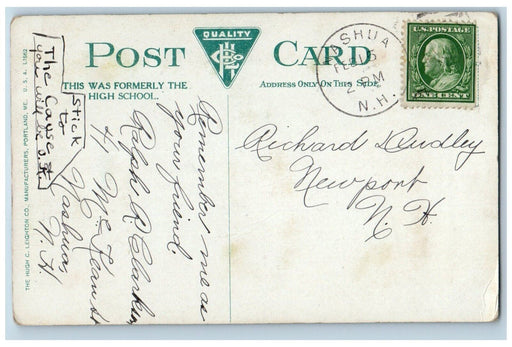 POST CARD
QUALITY
THIS WAS FORMERLY THE
HIGH SCHOOL.
ADDRESS ONLY ON THIS SIDE.
NASHUA
FEB 15
2 PM
N.H.
U.S. POSTAGE
ONE CENT
Richard Dudley
Newport
N. H.
Remember me as
your friend.
Ralph R. Clarkin
4 McKean St
Nashua,
N H
stick
to
The Cause &
you will be O.K.
THE HUGH C. LEIGHTON CO., MANUFACTURERS, PORTLAND, ME. U. S. A.